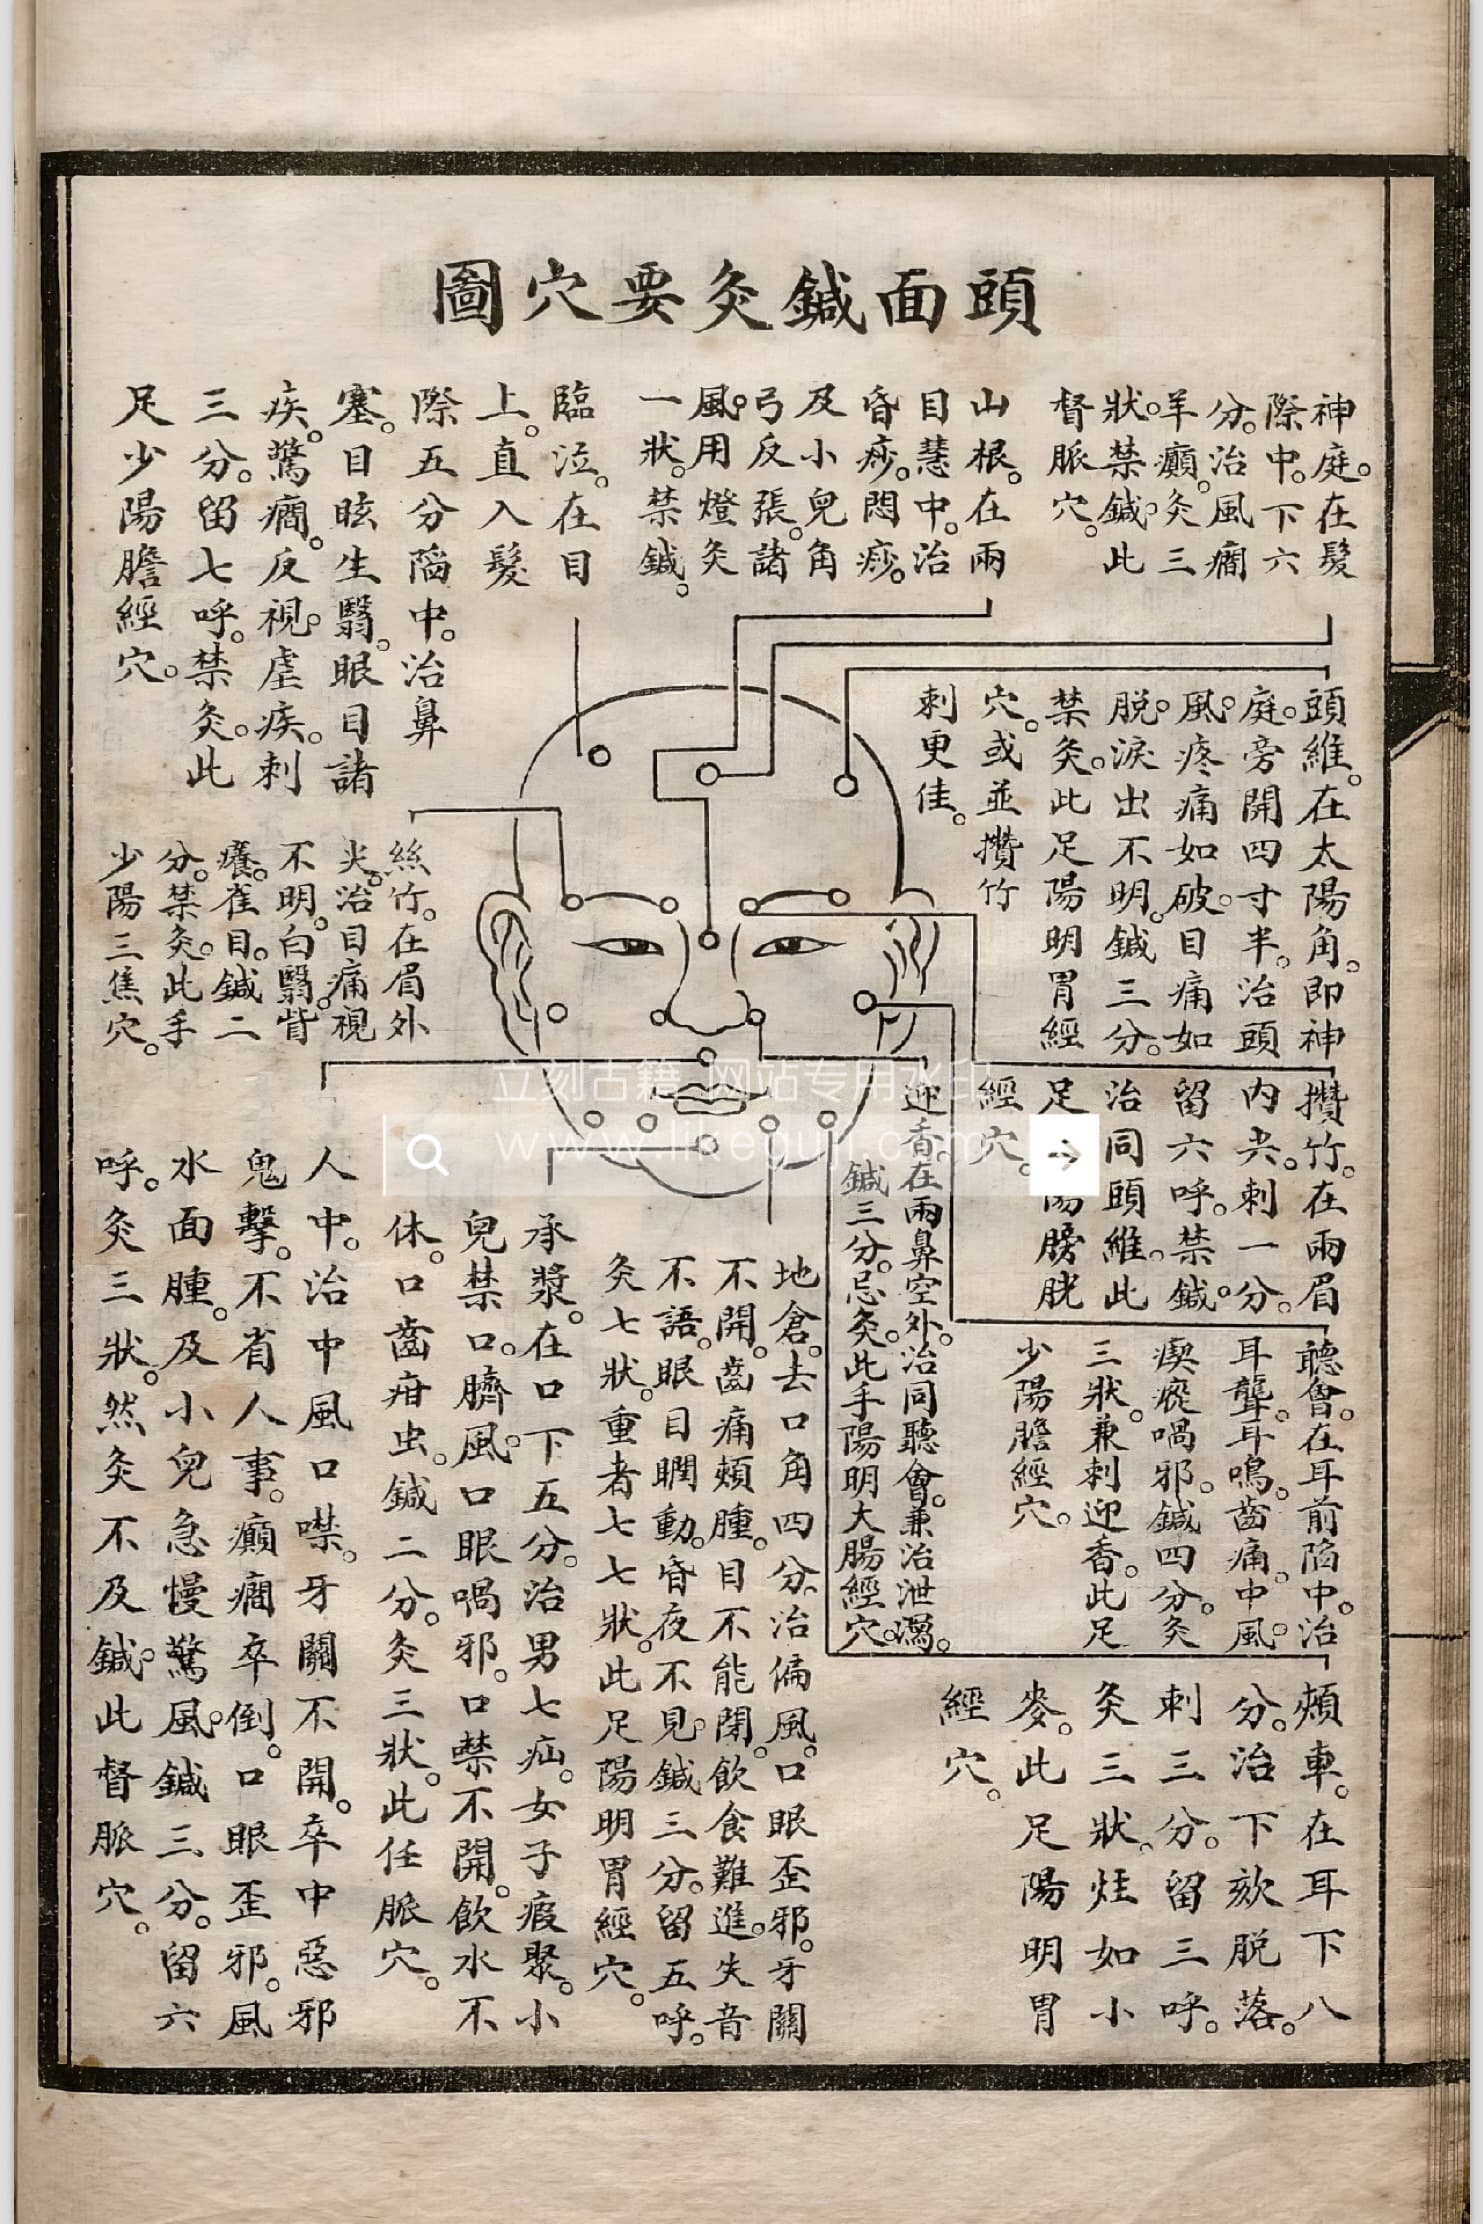 頭面鍼灸要穴圖
神庭。在髮
際中。下六
分。治風癎
羊癲。灸三
狀。禁鍼。此
督脈穴。
山根。在兩
目慧中。治
昏痧。悶痧。
及小兒角
弓反張。諸
風。用燈灸
一狀。禁鍼。
臨泣。在目
上。直入髮
際五分陷中。治鼻
塞。目眩生翳。眼目諸
疾。驚癎。反視。虐疾。刺
三分。留七呼。禁灸。此
足少陽膽經穴。
頭維。在太陽角。即神
庭。旁開四寸半。治頭
風。疼痛如破。目痛如
脫。淚出不明。鍼三分。
禁灸。此足陽明胃經
穴。或並攢竹
刺更佳。
絲竹。在眉外
尖。治目痛視
不明。白翳。眥
癢。雀目。鍼二
分。禁灸。此手
少陽三焦穴。
攢竹。在兩眉
內尖。刺一分。
留六呼。禁鍼。
治同頭維。此
足 陽膀胱
經穴。
迎香。在兩鼻空外。治同聽會。兼治泄瀉。
鍼三分。忌灸。此手陽明大腸經穴。
聽會。在耳前陷中。治
耳聾。耳鳴。齒痛。中風。
瘈瘲喎邪。鍼四分。灸
三狀。兼刺迎香。此足
少陽膽經穴。
頰車。在耳下八
分。治下頦脫落。
刺三分。留三呼。
灸三狀。炷如小
麥。此足陽明胃
經穴。
地倉。去口角四分。治偏風。口眼歪邪。牙關
不開。齒痛頰腫。目不能閉。飲食難進。失音
不語。眼目瞤動。昏夜不見。鍼三分。留五呼。
灸七狀。重者七七狀。此足陽明胃經穴。
承漿。在口下五分。治男七疝。女子瘕聚。小
兒禁口。臍風。口眼喎邪。口禁不開。飲水不
休。口齒疳虫。鍼二分。灸三狀。此任脈穴。
人中。治中風口噤。牙關不開。卒中惡邪
鬼擊。不省人事。癲癎卒倒。口眼歪邪。風
水面腫。及小兒急慢驚風。鍼三分。留六
呼。灸三狀。然灸不及鍼。此督脈穴。
立刻古籍 网站专用水印
www.likeguji.com